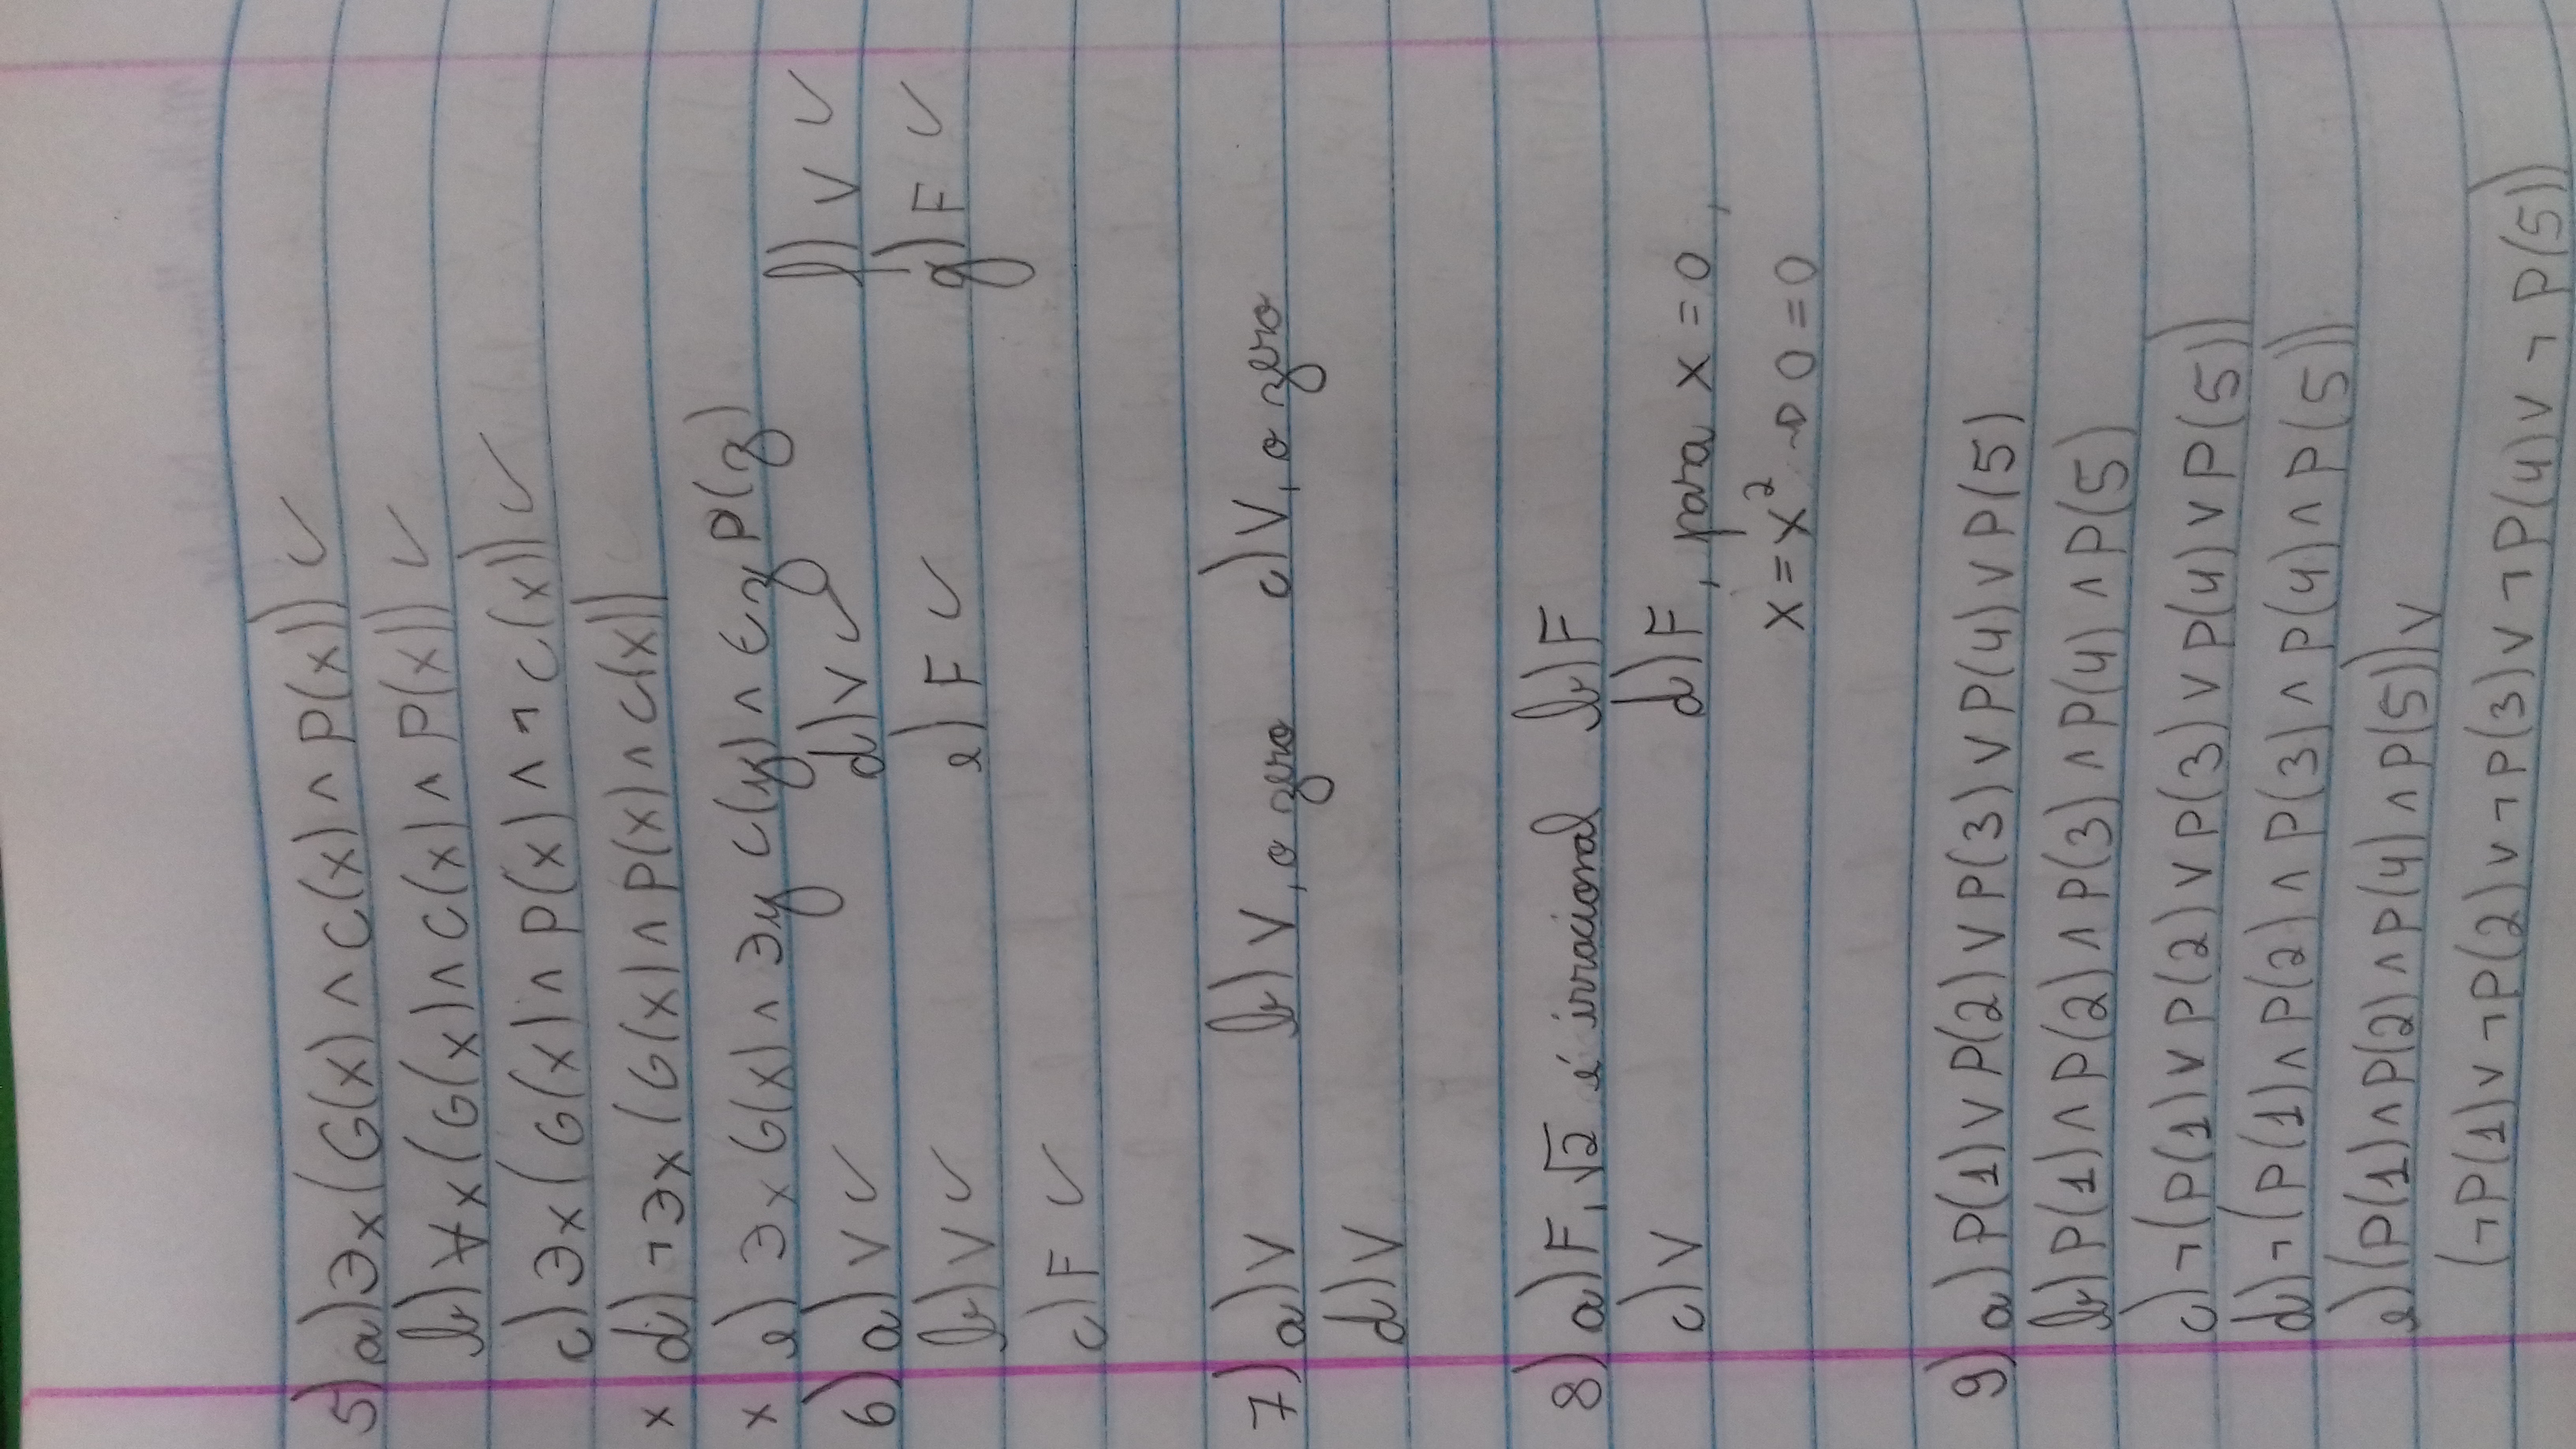 5) a) ∃x (G(x) ∧ C(x) ∧ P(x)) ✓
b) ∀x (G(x) ∧ C(x) ∧ P(x)) ✓
c) ∃x (G(x) ∧ P(x) ∧ ¬C(x)) ✓
x d) ¬∃x (G(x) ∧ P(x) ∧ C(x))
x e) ∃x G(x) ∧ ∃y C(y) ∧ ∈z P(z)
6) a) V ✓ d) V ✓ f) V ✓
b) V ✓ e) F ✓ g) F ✓
c) F ✓
7) a) V b) V, o zero c) V, o zero
d) V
8) a) F, √2 é irracional b) F
c) V d) F, para x = 0,
x = x² → 0 = 0
9) a) P(1) ∨ P(2) ∨ P(3) ∨ P(4) ∨ P(5)
b) P(1) ∧ P(2) ∧ P(3) ∧ P(4) ∧ P(5)
c) ¬(P(1) ∨ P(2) ∨ P(3) ∨ P(4) ∨ P(5))
d) ¬(P(1) ∧ P(2) ∧ P(3) ∧ P(4) ∧ P(5))
e) (P(1) ∧ P(2) ∧ P(4) ∧ P(5)) ∨
(¬P(1) ∨ ¬P(2) ∨ ¬P(3) ∨ ¬P(4) ∨ ¬P(5))